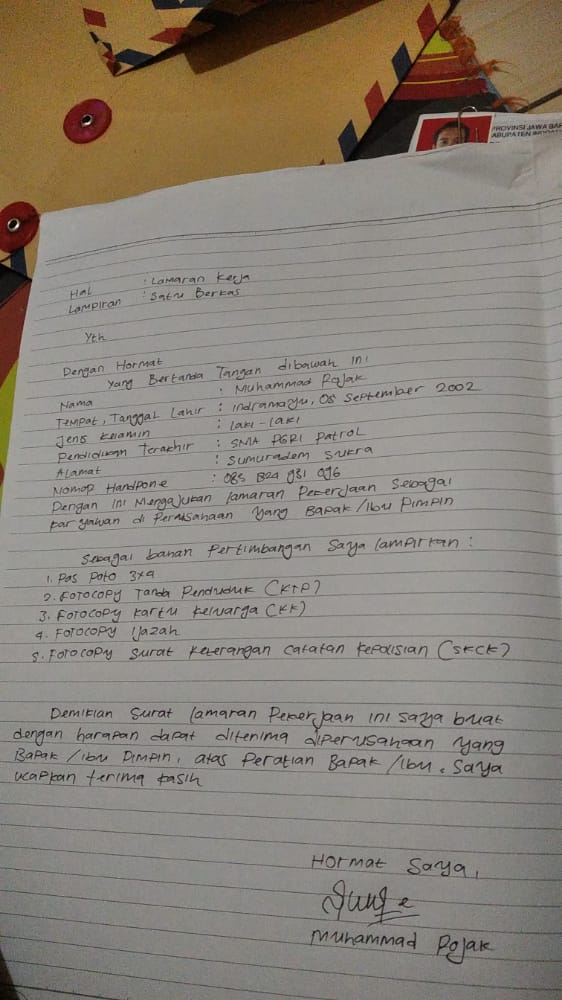 PROVINSI JAWA BAR
KABUPATEN INDRA
Hal : Lamaran Kerja
Lampiran : Satu Berkas
Yth
Dengan Hormat
Yang Bertanda Tangan dibawah ini
Nama : Muhammad Rojak
Tempat, Tanggal Lahir : Indramayu, 05 September 2002
Jenis Kelamin : Laki-Laki
Pendidikan Terakhir : SMA PGRI Patrol
Alamat : Sumuradem Sukra
Nomop Handpone : 085 824 931 096
Dengan ini Mengajukan lamaran Pekerjaan Sebagai
Karyawan di Perusahaan Yang Bapak/Ibu Pimpin
Sebagai bahan Pertimbangan Saya lampirkan :
1. Pas Poto 3x4
2. Fotocopy Tanda Penduduk (KTP)
3. Fotocopy Kartu Keluarga (KK)
4. Fotocopy Ijazah
5. Fotocopy Surat Keterangan Catatan Kepolisian (SKCK)
Demikian Surat lamaran Pekerjaan ini saya buat
dengan harapan dapat diterima diperusahaan yang
Bapak/Ibu Pimpin, atas Peratian Bapak/Ibu. Saya
ucapkan terima kasih
Hormat Saya,
Muhammad Rojak